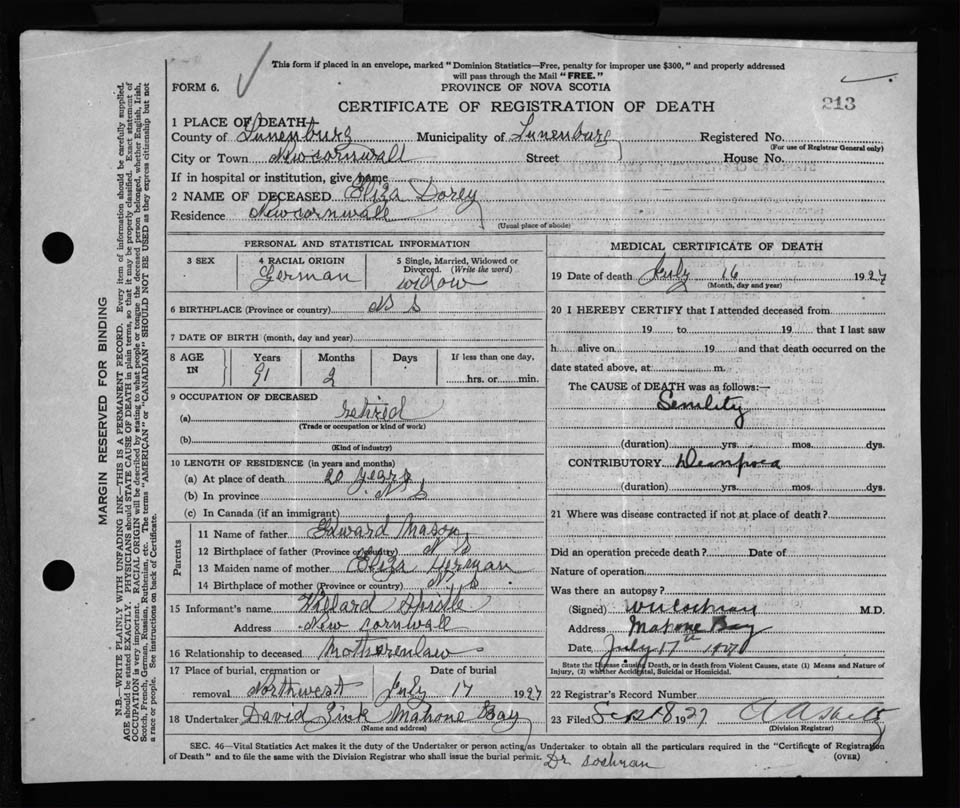 This form if placed in an envelope, marked "Dominion Statistics—Free, penalty for improper use $300," and properly addressed
will pass through the Mail "FREE."
FORM 6.
PROVINCE OF NOVA SCOTIA
CERTIFICATE OF REGISTRATION OF DEATH
213
1 PLACE OF DEATH
County of Lunenburg Municipality of Lunenburg Registered No.
(For use of Registrar General only)
City or Town New cornwall Street House No.
If in hospital or institution, give name
2 NAME OF DECEASED Eliza Dorey
Residence New cornwall
(Usual place of abode)
PERSONAL AND STATISTICAL INFORMATION
3 SEX 4 RACIAL ORIGIN German 5 Single, Married, Widowed or Divorced. (Write the word) widow
6 BIRTHPLACE (Province or country) N S
7 DATE OF BIRTH (month, day and year)
8 AGE IN Years 91 Months 2 Days If less than one day, hrs. or min.
9 OCCUPATION OF DECEASED
(a) retired
(Trade or occupation or kind of work)
(b)
(Kind of industry)
10 LENGTH OF RESIDENCE (in years and months)
(a) At place of death 20 years
(b) In province N S
(c) In Canada (if an immigrant)
Parents
11 Name of father Edward Mason
12 Birthplace of father (Province or country) N S
13 Maiden name of mother Eliza
14 Birthplace of mother (Province or country) N S
15 Informant's name Willard Spidle
Address New cornwall
16 Relationship to deceased Motherenlaw
17 Place of burial, cremation or removal Northwest Date of burial July 17 1927
18 Undertaker David Zink Mahone Bay
(Name and address)
MEDICAL CERTIFICATE OF DEATH
19 Date of death July 16 1927
(Month, day and year)
20 I HEREBY CERTIFY that I attended deceased from
19 to 19 that I last saw
h alive on 19 and that death occurred on the
date stated above, at m.
The CAUSE of DEATH was as follows:—
Senility
(duration) yrs. mos. dys.
CONTRIBUTORY
(duration) yrs. mos. dys.
21 Where was disease contracted if not at place of death?
Did an operation precede death? Date of
Nature of operation
Was there an autopsy?
(Signed) W H Cochran M.D.
Address Mahone Bay
Date July 17th 1927
State the Disease causing Death, or in death from Violent Causes, state (1) Means and Nature of
Injury, (2) whether Accidental, Suicidal or Homicidal.
22 Registrar's Record Number
23 Filed Sep 18 1927
(Division Registrar)
SEC. 46—Vital Statistics Act makes it the duty of the Undertaker or person acting as Undertaker to obtain all the particulars required in the "Certificate of Registration
of Death" and to file the same with the Division Registrar who shall issue the burial permit.
(OVER)
Dr. Cochran
MARGIN RESERVED FOR BINDING
N.B.—WRITE PLAINLY WITH UNFADING INK—THIS IS A PERMANENT RECORD. Every item of information should be carefully supplied.
AGE should be stated EXACTLY. PHYSICIANS should STATE CAUSE OF DEATH in plain terms, so that it may be properly classified. Exact statement of
OCCUPATION is very important. RACIAL ORIGIN will be described by stating to what people or tongue the deceased person belonged, whether English, Irish,
Scotch, French, German, Russian, Ruthenian, etc. The terms "AMERICAN" or "CANADIAN" SHOULD NOT BE USED as they express citizenship but not
a race or people. See instructions on back of Certificate.